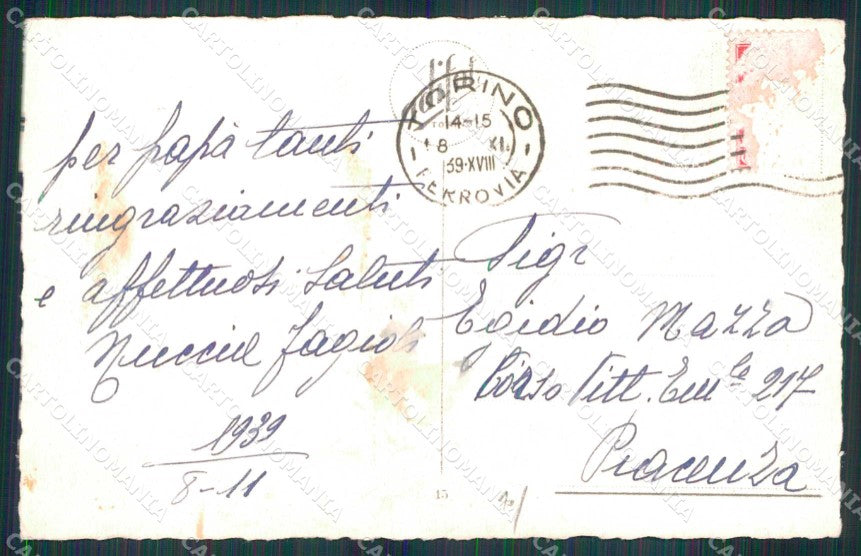 per papà tanti
ringraziamenti
e affettuosi saluti
Nuccia Fagioli
1939
8-11
TORINO
14-15
8 XI
39·XVIII
FERROVIA
Sigr
Egidio Mazza
Corso Vitt. Emle 217
Piacenza
15
CARTOLINOMANIA